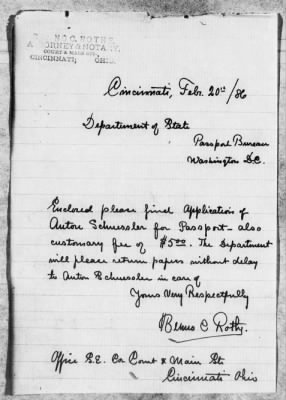 C. ROTHE,
ATTORNEY & NOTARY,
COURT & MAIN STS.
CINCINNATI, OHIO.
Cincinnati, Feb. 20st /86
Department of State
Passport Bureau
Washington D.C.
Enclosed please find Application of
Anton Schuessler for Passport - also
customary fee of $5.00. The Department
will please return papers without delay
to Anton Schuessler in care of
Yours Very Respectfully
C Rothe.
Office S.E. Cor Court & Main Sts
Cincinnati Ohio